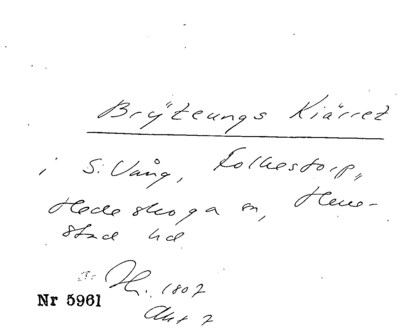 Brÿteungs Kiärret
i S. Vång, Folkestorp,
Hedeskoga sn, Herre-
stad hd
Hr. 1807
Nr 5961
Akt 7